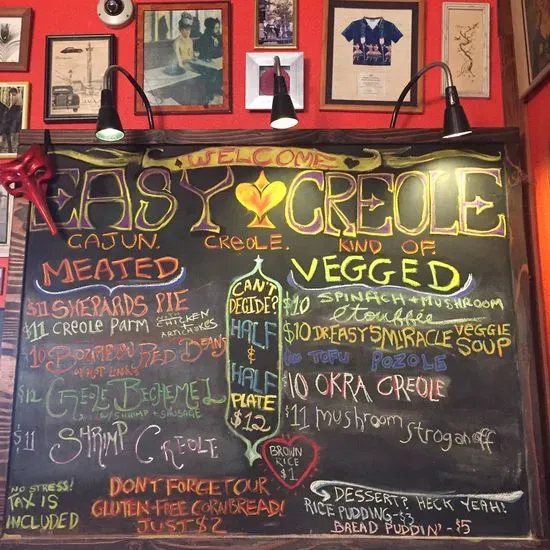 WELCOME
EASY CREOLE
CAJUN. CREOLE. KIND OF.
MEATED
$11 SHEPARDS PIE
$11 CREOLE PARM WITH CHICKEN ARTICHOKES
10 BOZAMBOU RED BEANS
W/HOT LINKS
$12 CREOLE BECHEMEL
W/SHRIMP + SAUSAGE
$11 SHRIMP CREOLE
CAN'T
DECIDE?
HALF
&
HALF
PLATE
$12
BROWN
RICE
$1
VEGGED
$10 SPINACH + MUSHROOM
etouffée
$10 DREASY'S MIRACLE VEGGIE SOUP
TOFU POZOLE
$10 OKRA CREOLE
$11 mushroom stroganoff
NO STRESS!
TAX IS
INCLUDED
DON'T FORGET OUR
GLUTEN-FREE CORNBREAD!
JUST $2
DESSERT? HECK YEAH!
RICE PUDDING - $3
BREAD PUDDIN' - $5